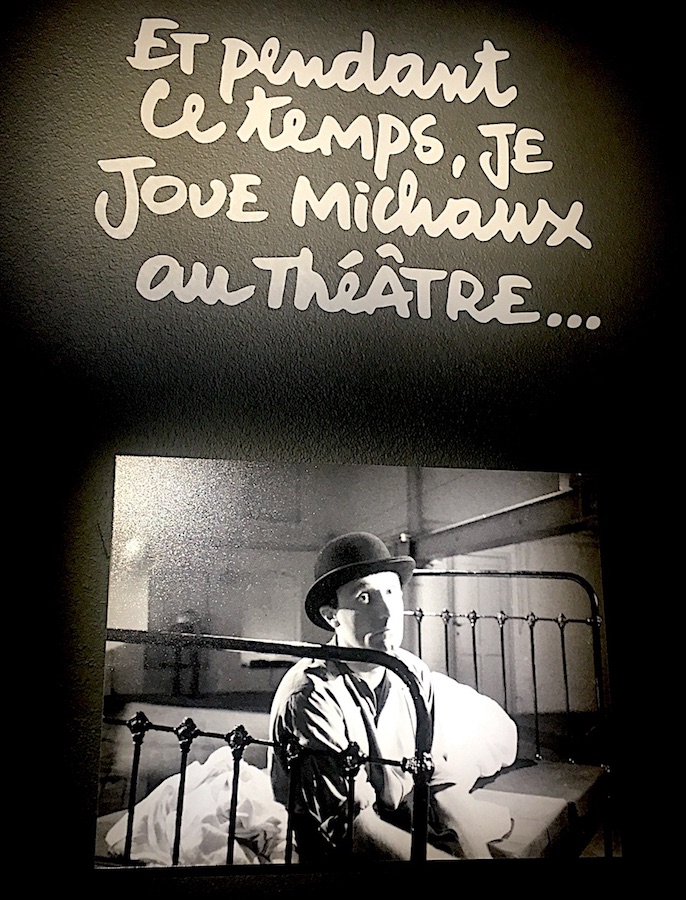 Et pendant
ce temps, je
joue Michaux
au théâtre...